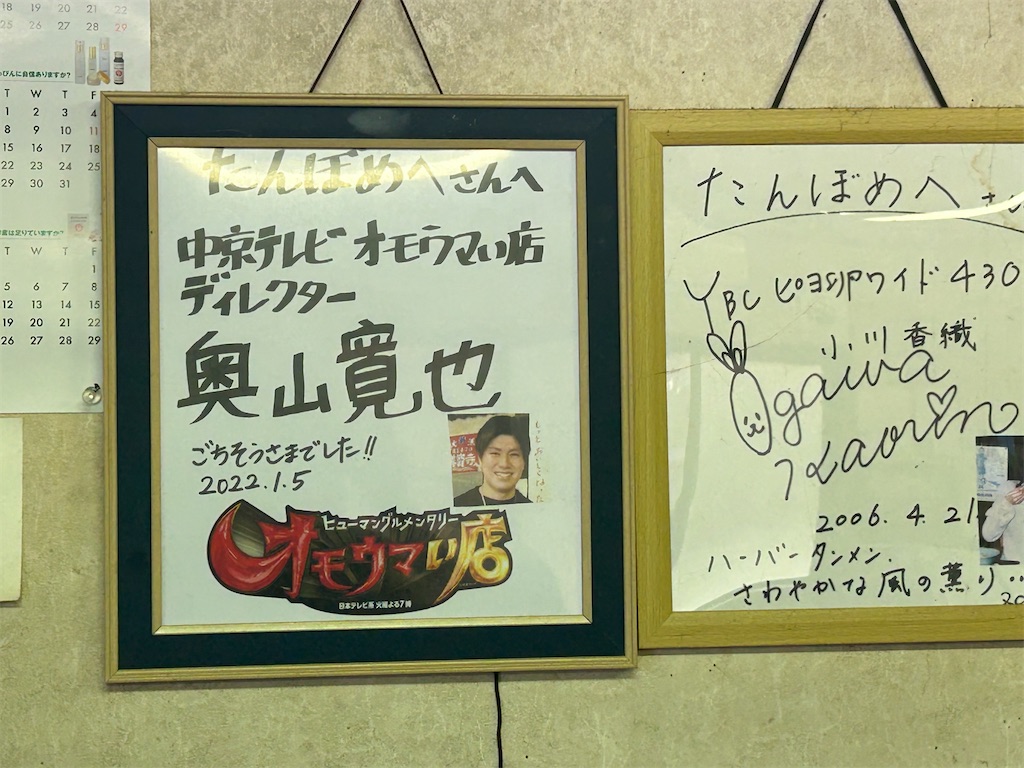 18 19 20 21 22
25 26 27 28 29
っぴんに自信ありますか?
T W T F
1 2 3 4
8 9 10 11
15 16 17 18
22 23 24 25
29 30 31
は足りていますか?
T W T F
1
5 6 7 8
12 13 14 15
19 20 21 22
26 27 28 29
たんぼめへさんへ
中京テレビ オモウマい店
ディレクター
奥山寛也
ごちそうさまでした!!
2022.1.5
ヒューマングルメンタリー
オモウマい店
日本テレビ系 火曜よる7時
たんぼめへ
YBC ピヨ卵ワイド430
小川香織
Ogawa
Kaori
2006.4.21
ハーバータンメン.
さわやかな風の薫り…